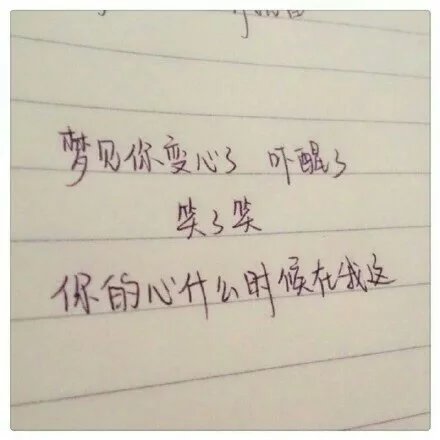 梦见你变心了 吓醒了
笑了笑
你的心什么时候在我这